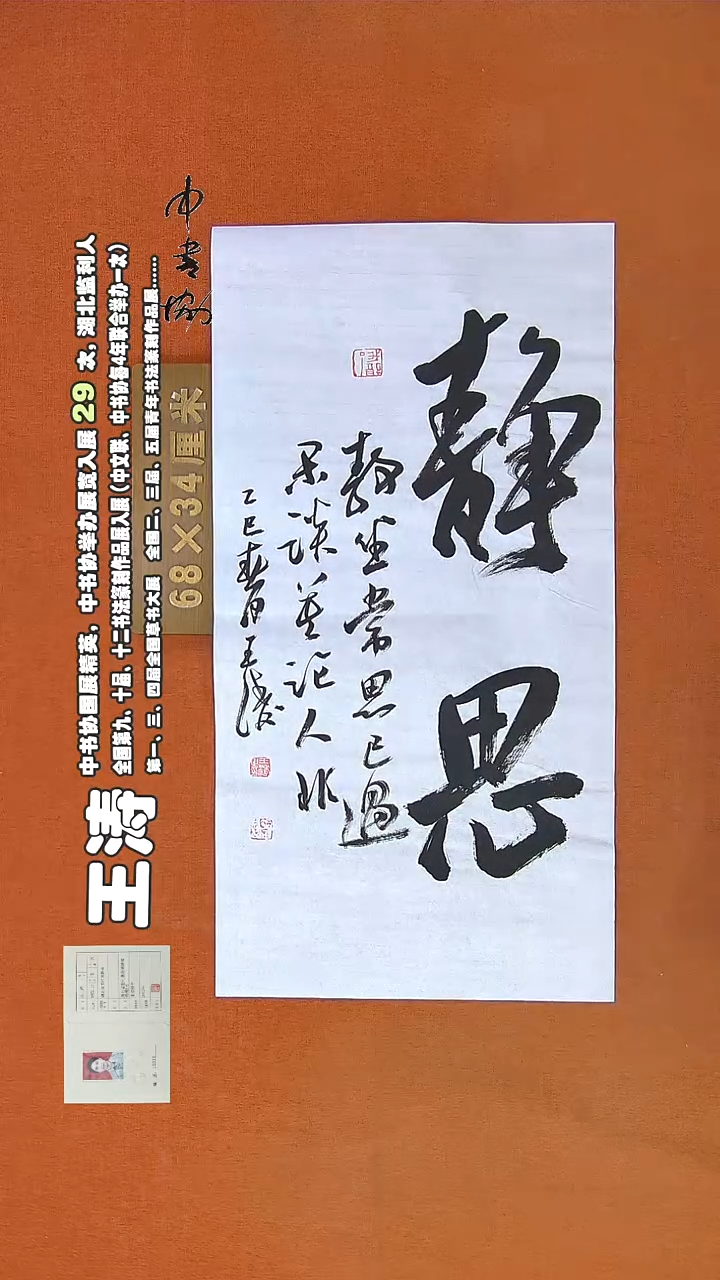 静思
静坐常思己過
闲谈莫论人非
乙巳春月王涛
中书协
68×34厘米
王涛
中书协国展精英，中书协举办展览入展 29 次，湖北监利人
全国第九、十届、十二书法篆刻作品展入展（中文联、中书协每4年联合举办一次）
第一、三、四届全国草书大展 全国二、三届、五届青年书法篆刻作品展......